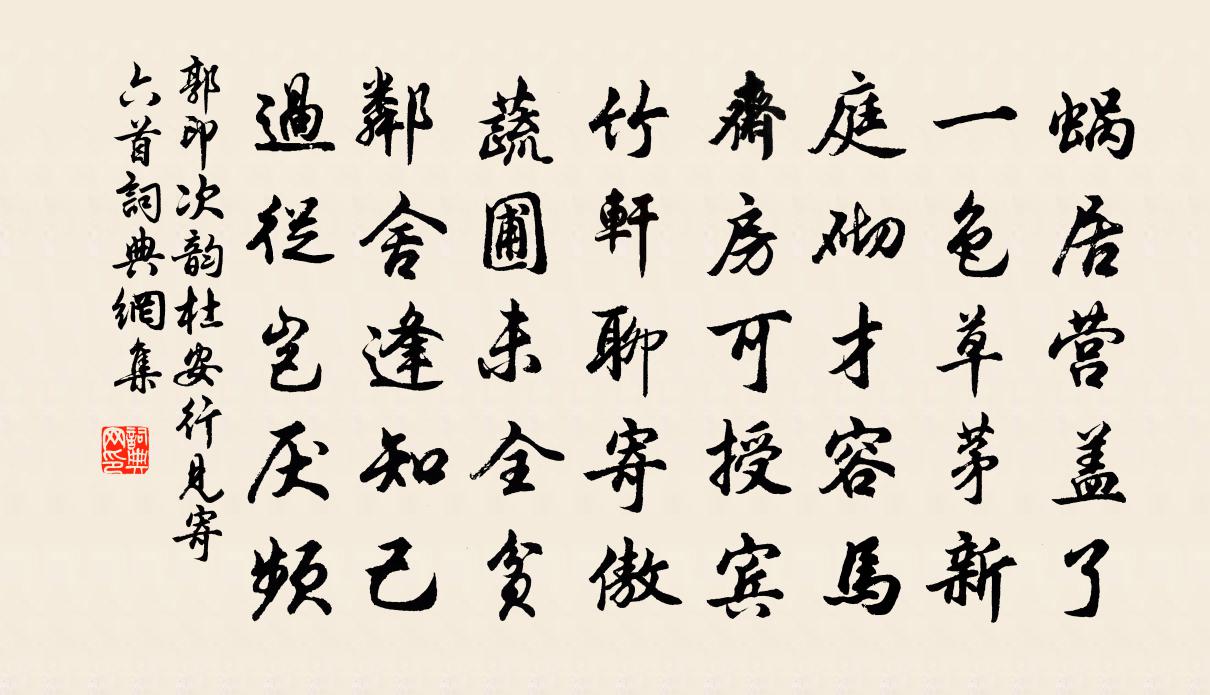 蝸居营盖了
一色草茅新
庭砌才容馬
齋房可授宾
竹軒聊寄傲
蔬圃未全貧
鄰舍逢知己
過從岂厌频
郭印次韵杜安行見寄
六首詞典網集
詞典
网印